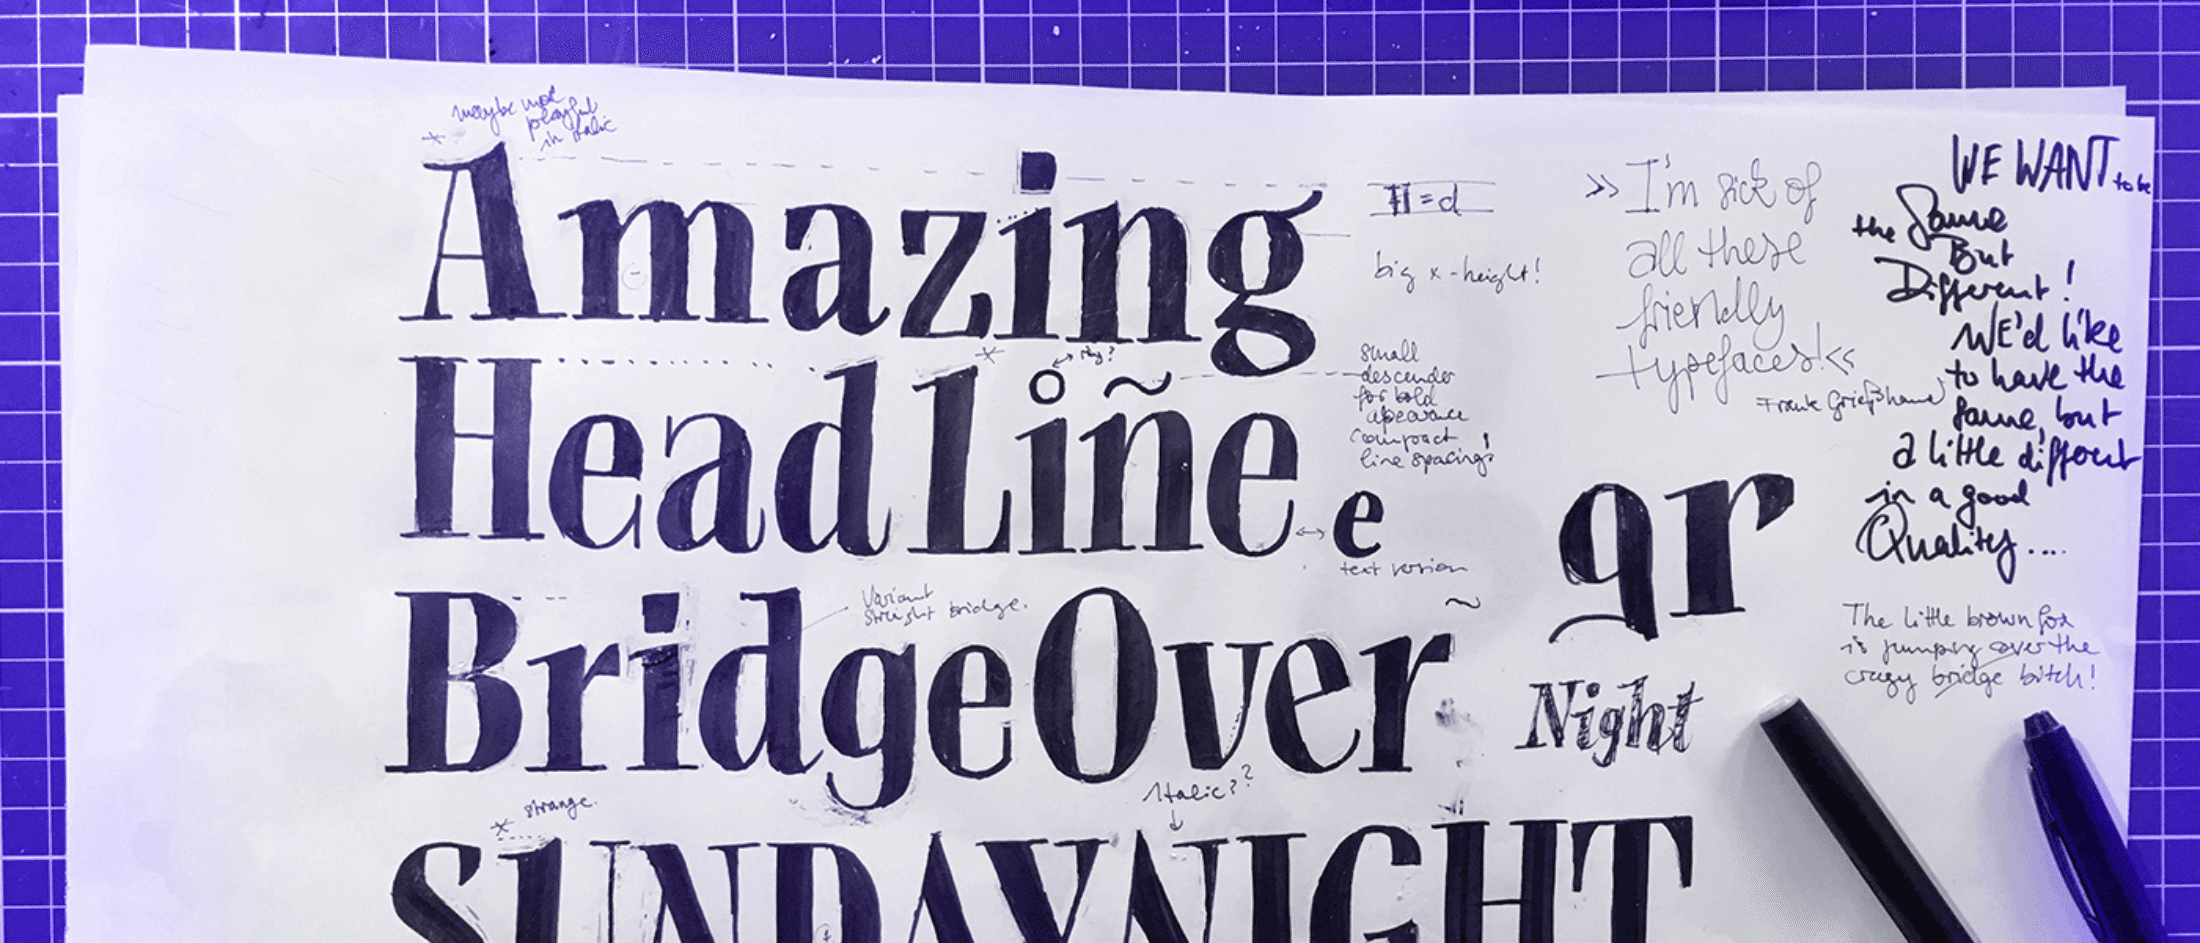 maybe more
playful
in italic
Amazing
H=d
big x-height!
>> I'm sick of
all these
friendly
typefaces! <<
Frank Grießhammer
WE WANT to be
the Same
But
Different!
WE'd like
to have the
same, but
a little different
in a good
Quality....
why?
HeadLiñe
small
descender
for bold
apearance
compact
line spacing!
e
text version
gr
Variant
straight bridge.
BridgeOver
~
Night
The little brown fox
is jumping over the
crazy bridge bitch!
strange.
Italic??
SUNDAYNIGHT